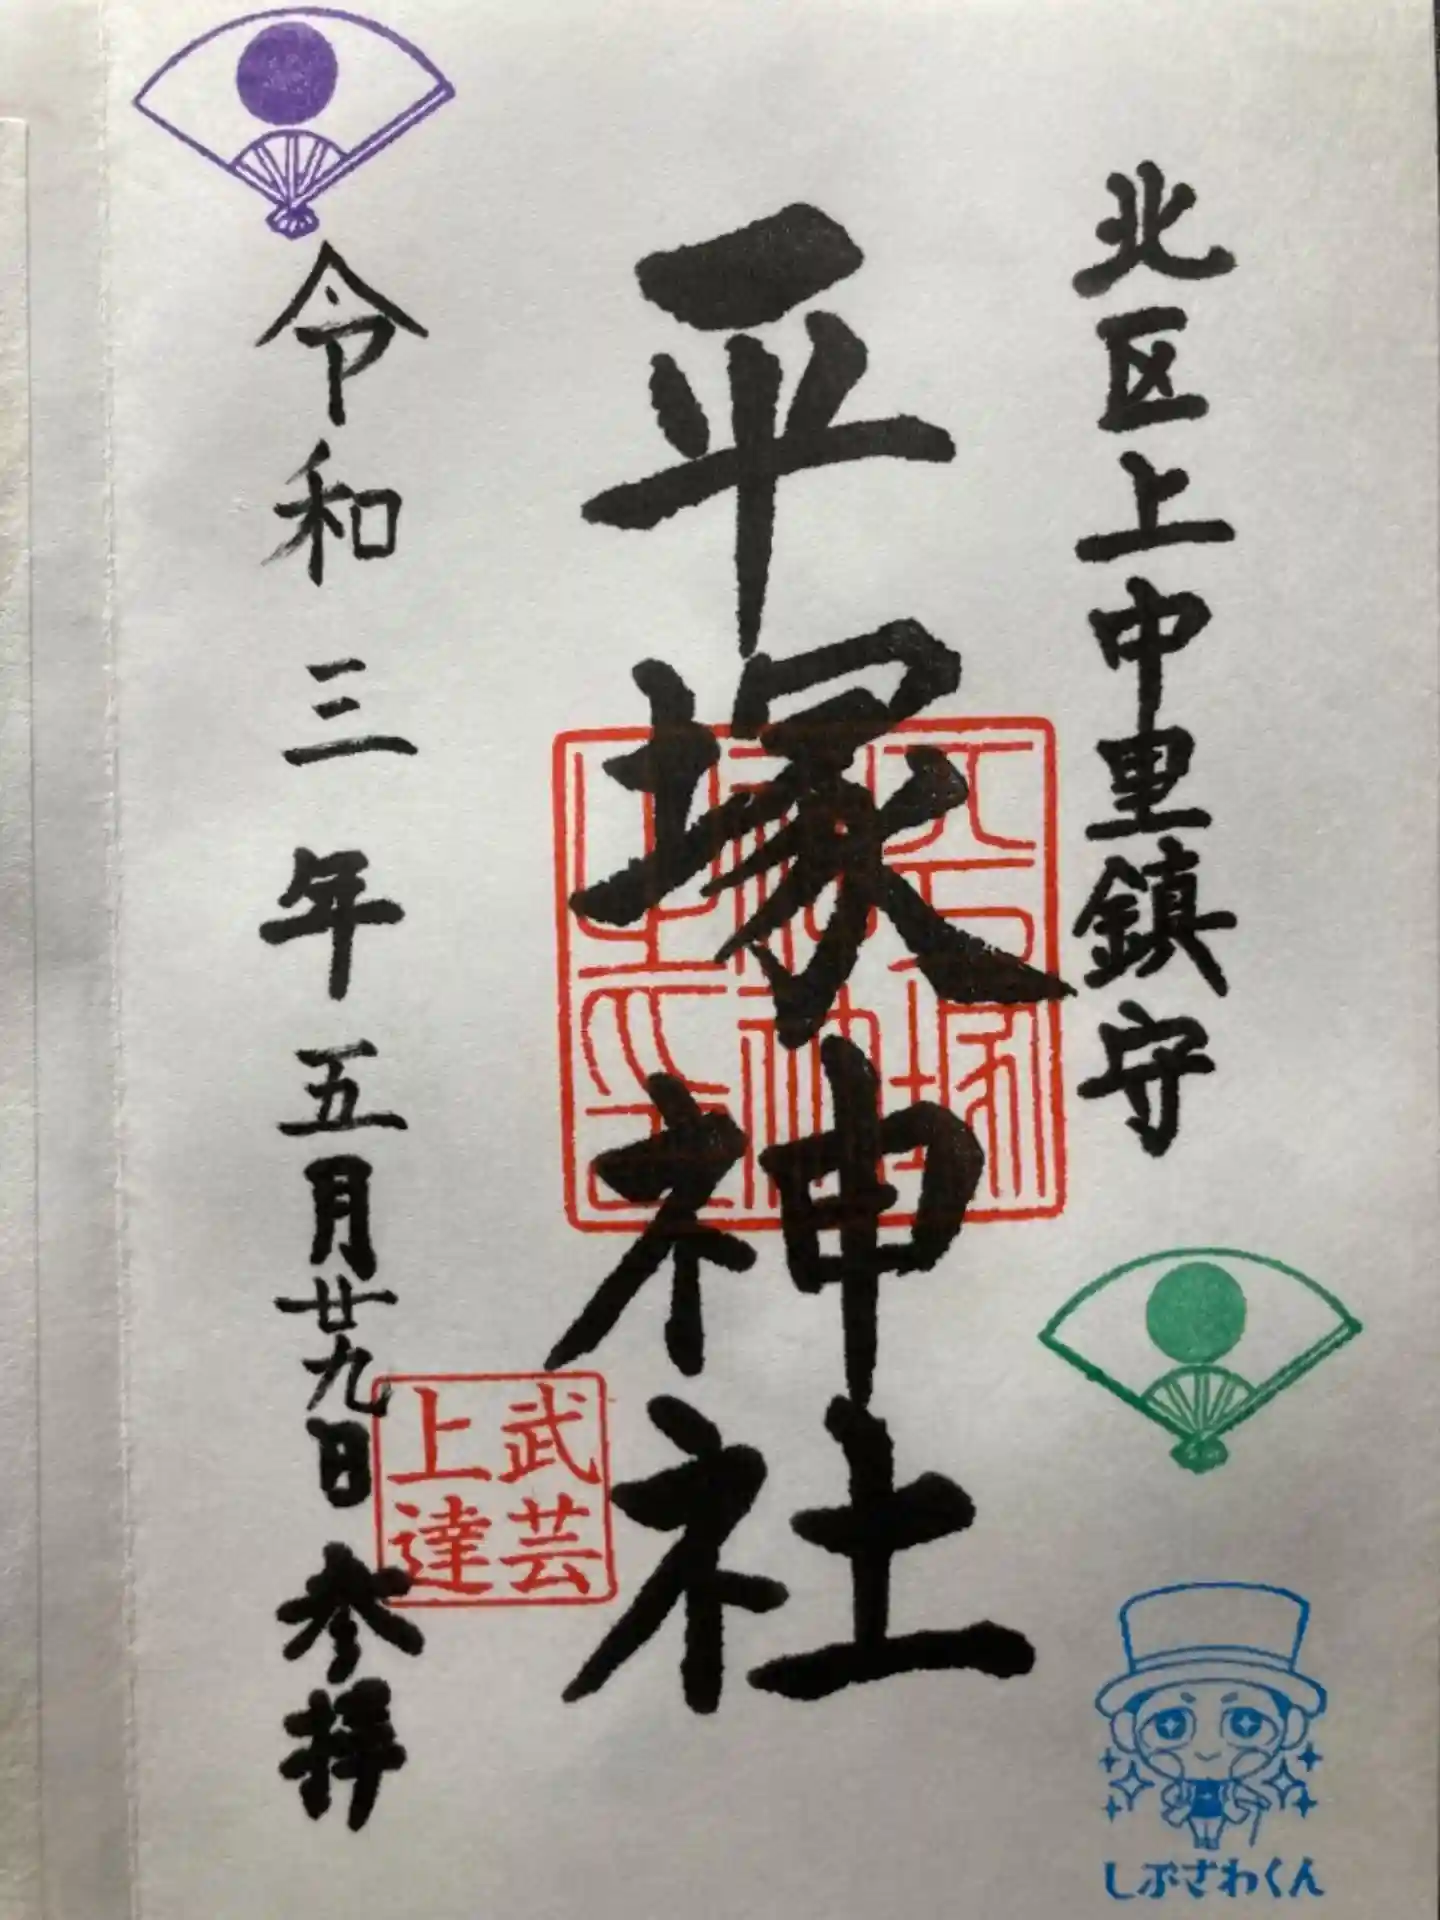 北区上中里鎮守
平塚神社
平塚神社之印
武芸
上達
令和三年五月廿九日参拝
しぶざわくん